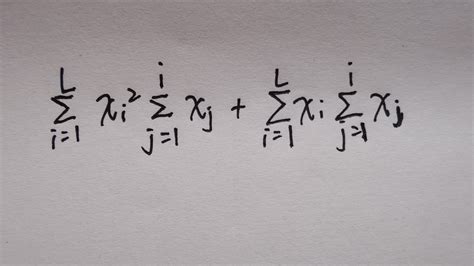 $\sum_{i=1}^{L} x_i^2 \sum_{j=1}^{i} x_j + \sum_{i=1}^{L} x_i \sum_{j=1}^{i} x_j$